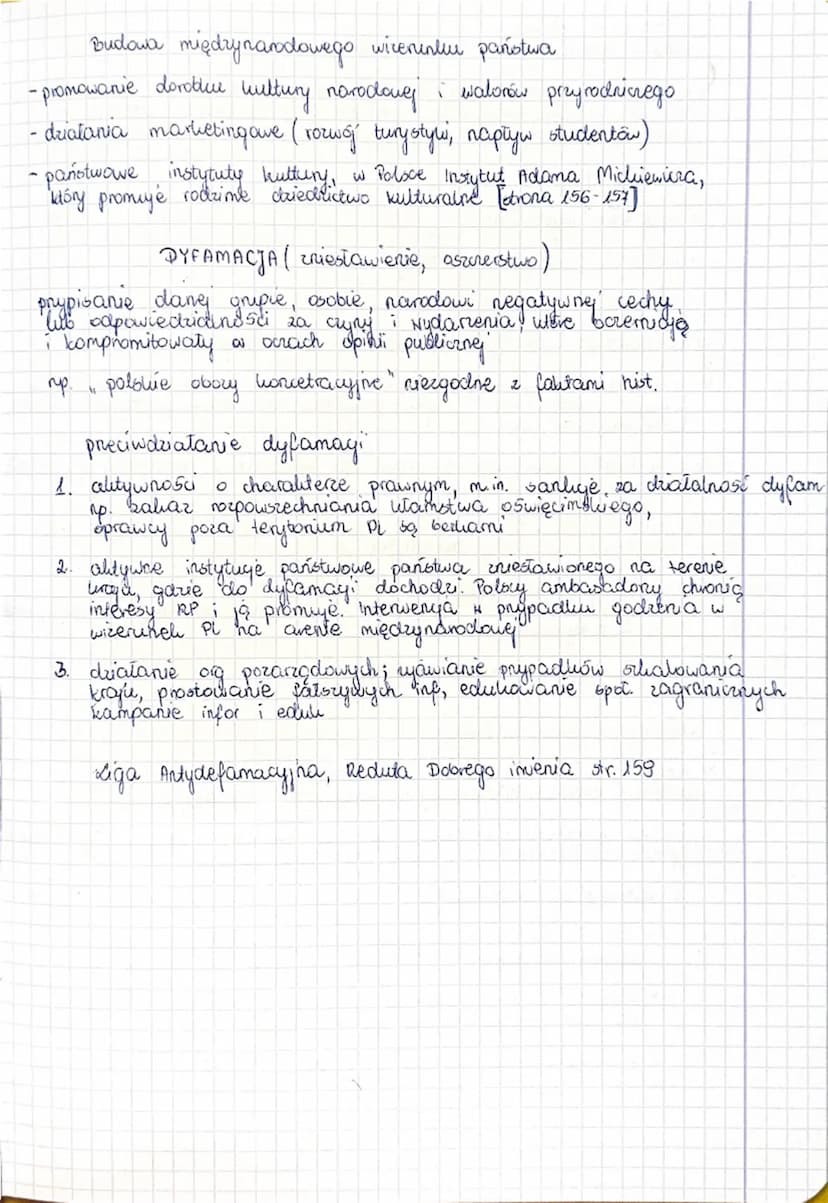 Budowa międzynarodowego wizerunku państwa
- promowanie dorobku kultury narodowej i walorów przyrodniczego
- działania marketingowe (rozwój turystyki, napływ studentów)
- państwowe instytuty kultury, w Polsce Instytut Adama Mickiewicza,
który promuje rodzime dziedzictwo kulturalne [strona 156-157]
DYFAMACJA (zniesławienie, oszczerstwo)
przypisanie danej grupie, osobie, narodowi negatywnej cechy
lub odpowiedzialności za czyny i wydarzenia, które bezczeszczą
i kompromitowały w oczach opinii publicznej
np. "polskie obozy koncetracyjne" niezgodne z faktami hist.
przeciwdziałanie dyfamacji
1. aktywności o charakterze prawnym, m.in. sankcje za działalność dyfam
np. zakaz rozpowszechniania kłamstwa oświęcimskiego,
oprawcy poza terytorium PL są bezkarni
2. aktywne instytucje państwowe państwa zniesławionego na terenie
kraju, gdzie do dyfamacji dochodzi. Polscy ambasadorzy chronią
interesy RP i ją promuje. Interwencja w przypadku godzenia w
wizerunek PL na arenie międzynarodowej
3. działanie org pozarządowych; ujawianie przypadków szkalowania
kraju, prostowanie fałszywych inf, edukowanie społ. zagranicznych
kampanie infor i eduk
Liga Antydefamacyjna, Reduta Dobrego imienia str. 159